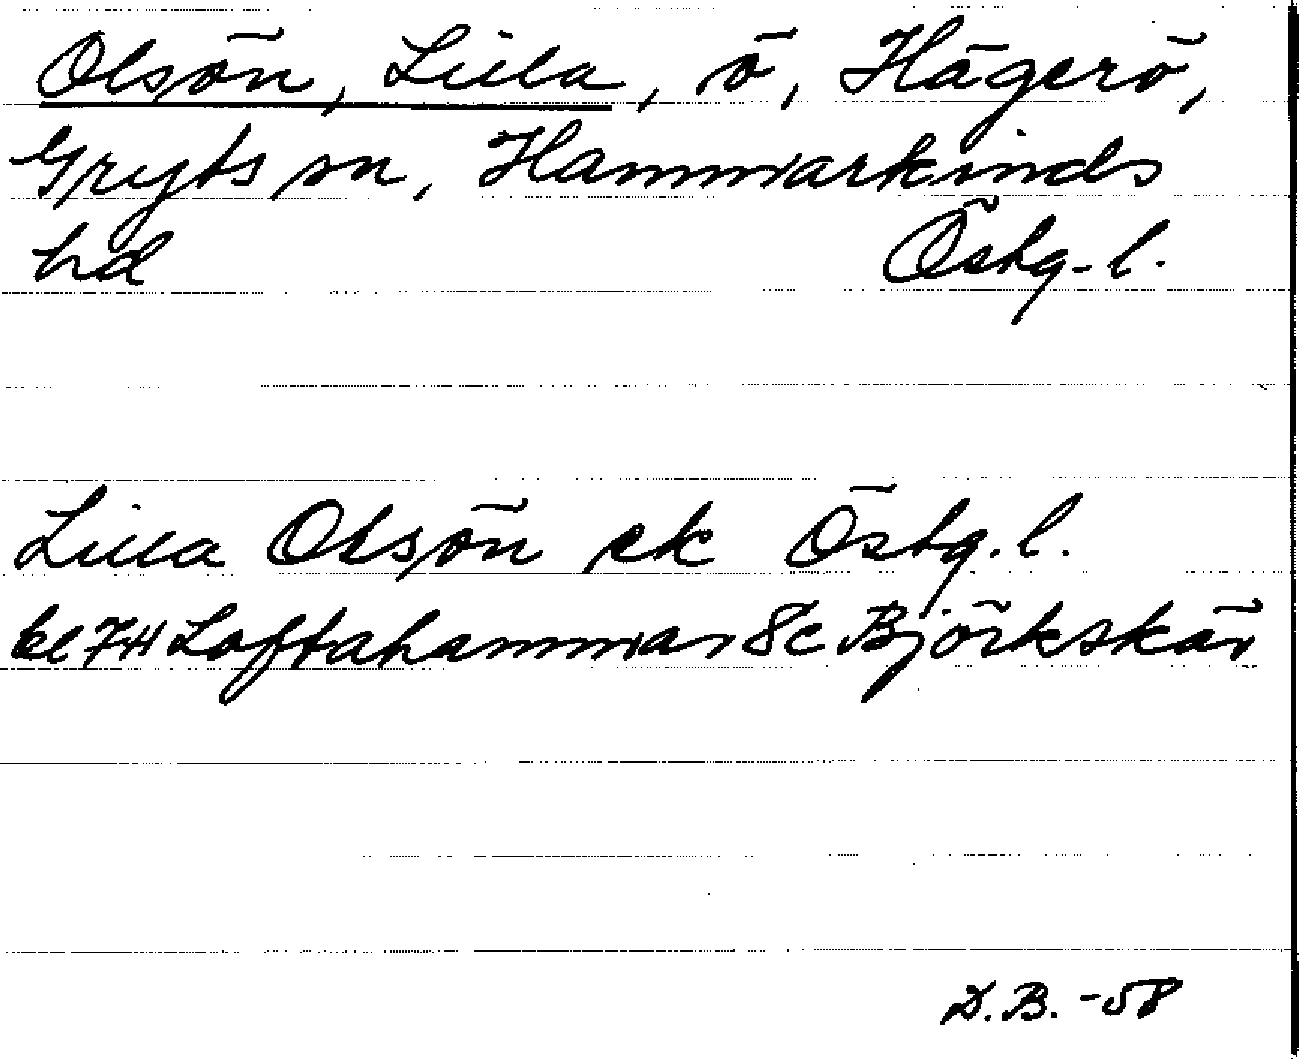 Olsön, Lilla, ö, Hägerö,
Gryts sn, Hammarkinds
hd Östg. l.
Lilla Olsön ek Östg. l.
bl 7 H Loftahammar 8c Björkskär
D.B. -58